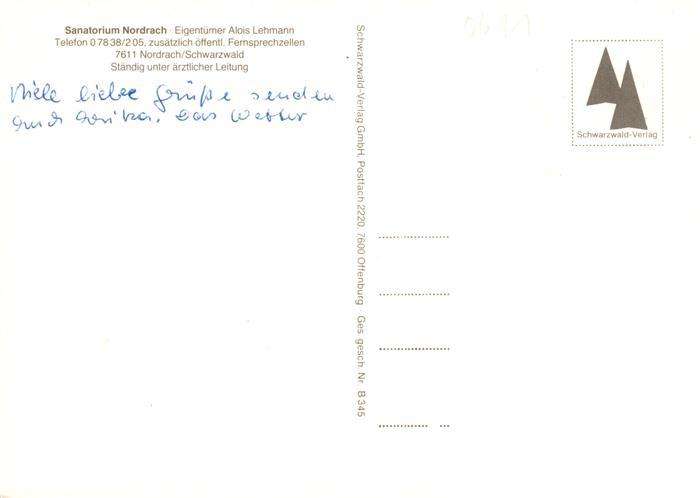 Sanatorium Nordrach · Eigentümer Alois Lehmann
Telefon 0 78 38/2 05, zusätzlich öffentl. Fernsprechzellen
7611 Nordrach/Schwarzwald
Ständig unter ärztlicher Leitung
Viele liebe Grüße senden
Das Wetter
Schwarzwald-Verlag GmbH, Postfach 2220, 7600 Offenburg Ges. gesch. Nr. B 345
Schwarzwald-Verlag